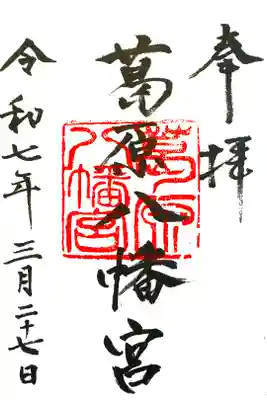 奉拝
葛原八幡宮
葛原
八幡宮
令和七年三月二十七日